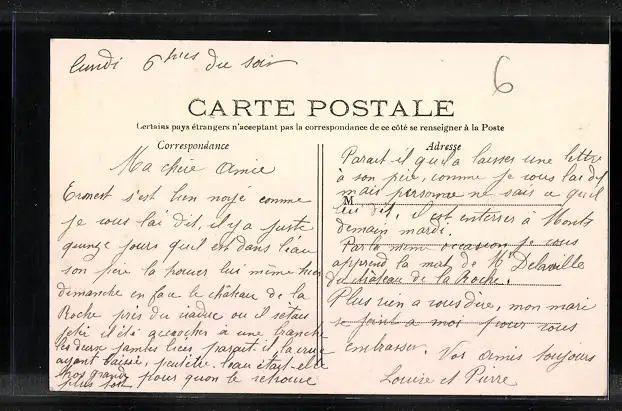 lundi 6 hres du soir
6
CARTE POSTALE
Certains pays étrangers n'acceptant pas la correspondance de ce côté se renseigner à la Poste
Correspondance
Ma chère amie
Ernest s'est bien noyé comme
je vous l'ai dit, il y a juste
quinze jours qu'il est dans l'eau
son père l'a trouver lui même hier
dimanche en face le château de la
Roche près du viaduc ou il s'était
jeté il été accrocher à une branche
les deux jambes liées parait il la crue
ayant baissé, peutêtre l'eau était elle
trop grande pour qu'on le retrouve
plus tôt
Adresse
Parait il qu'il a laisser une lettre
à son père, comme je vous l'ai dit
M
mais personne ne sais ce qu'il
lui dit, il est enterrer à Monts
demain mardi.
Par la même occasion je vous
apprend la mort de Mr Delaville
du château de la Roche.
Plus rien a vous dire, mon mari
se joint a moi pour vous
embrasser. Vos amis toujours
Louise et Pierre